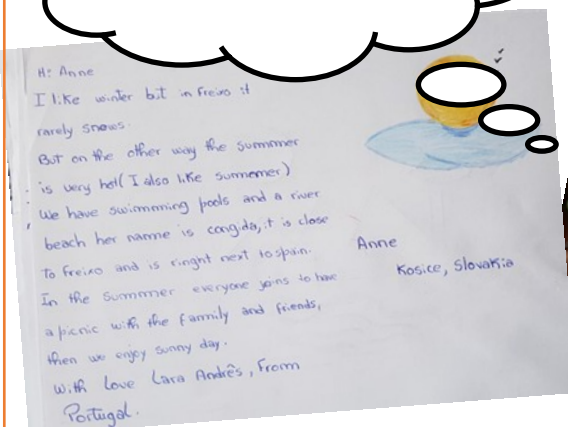 Hi Anne
I like winter bit in Freixo it
rarely snows.
But on the other way the summer
is very hot( I also like summemer)
We have swimming pools and a river
beach her name is congida, it is close
to Freixo and is ringht next to spain.
In the summer everyone joins to have
a picnic with the family and friends,
then we enjoy sunny day.
With Love Lara Andrês, From
Portugal.
Anne
Kosice, Slovakia